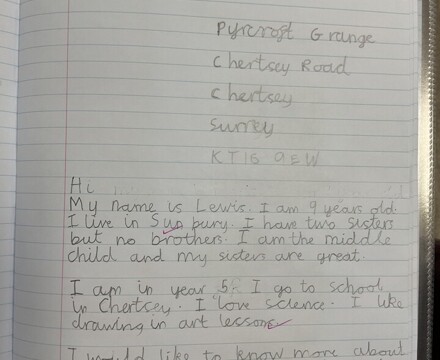 Pyrcroft Grange
Chertsey Road
Chertsey
Surrey
KT16 9EW
Hi
My name is Lewis. I am 9 years old.
I live in Sunbury. I have two sisters
but no brothers. I am the middle
child and my sisters are great.
I am in year 5. I go to school
in Chertsey. I love science. I like
drawing in art lessons.
I would like to know more about